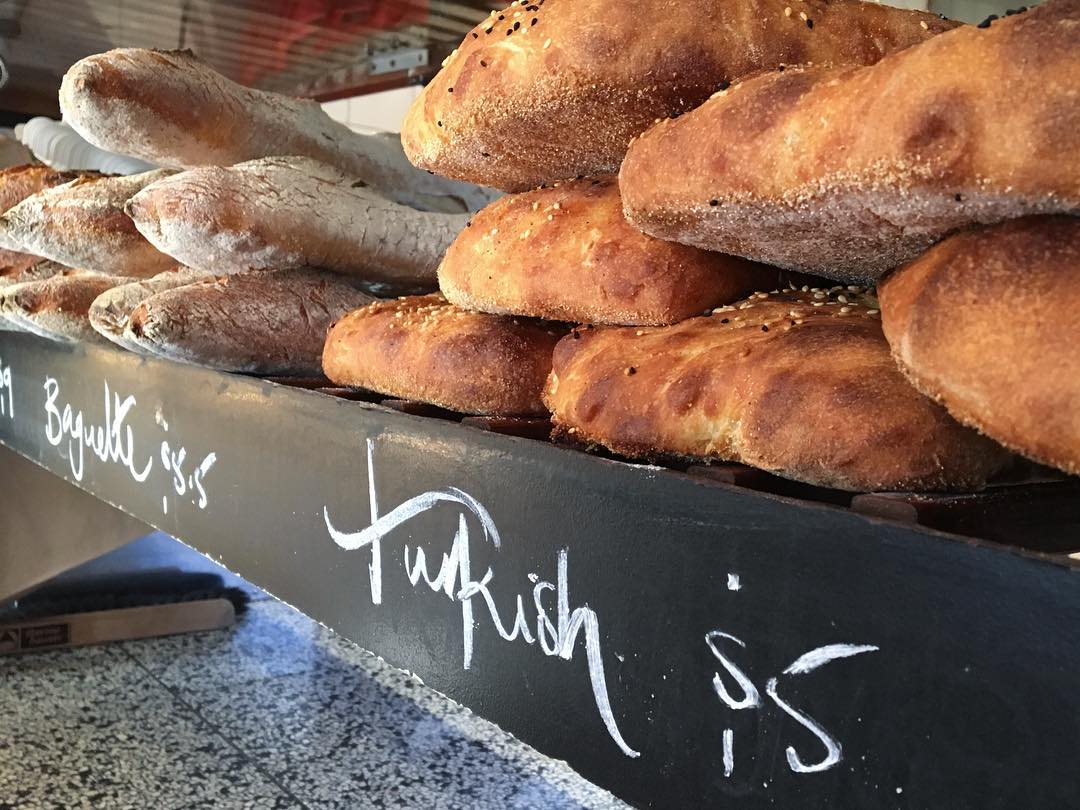 Baguette $5.5
Turkish $5